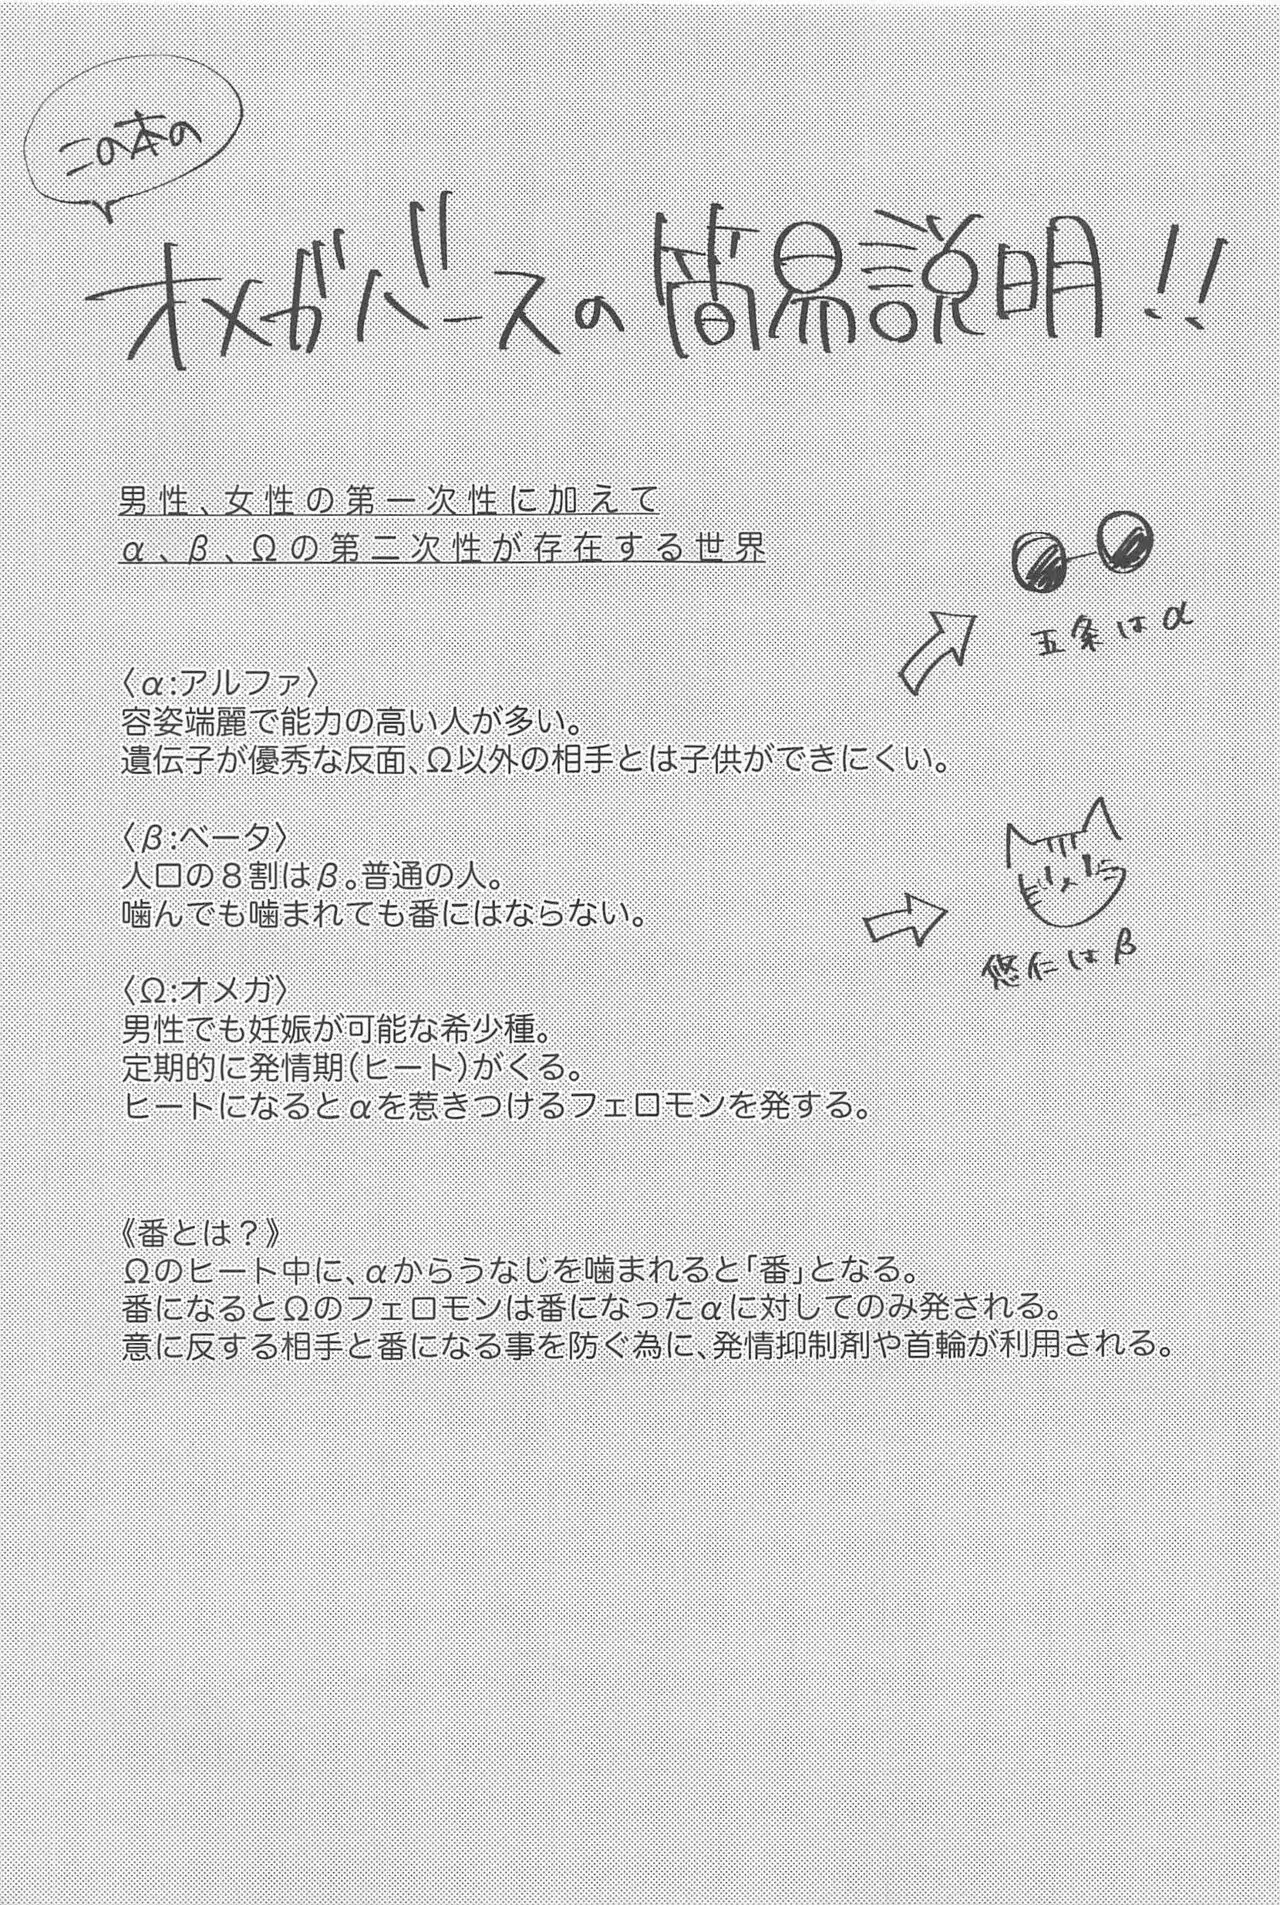 この本の
オメガバースの簡易説明!!
男性、女性の第一次性に加えて
α、β、Ωの第二次性が存在する世界
五条はα
〈α:アルファ〉
容姿端麗で能力の高い人が多い。
遺伝子が優秀な反面、Ω以外の相手とは子供ができにくい。
〈β:ベータ〉
人口の８割はβ。普通の人。
噛んでも噛まれても番にはならない。
悠仁はβ
〈Ω:オメガ〉
男性でも妊娠が可能な希少種。
定期的に発情期(ヒート)がくる。
ヒートになるとαを惹きつけるフェロモンを発する。
《番とは？》
Ωのヒート中に、αからうなじを噛まれると「番」となる。
番になるとΩのフェロモンは番になったαに対してのみ発される。
意に反する相手と番になる事を防ぐ為に、発情抑制剤や首輪が利用される。